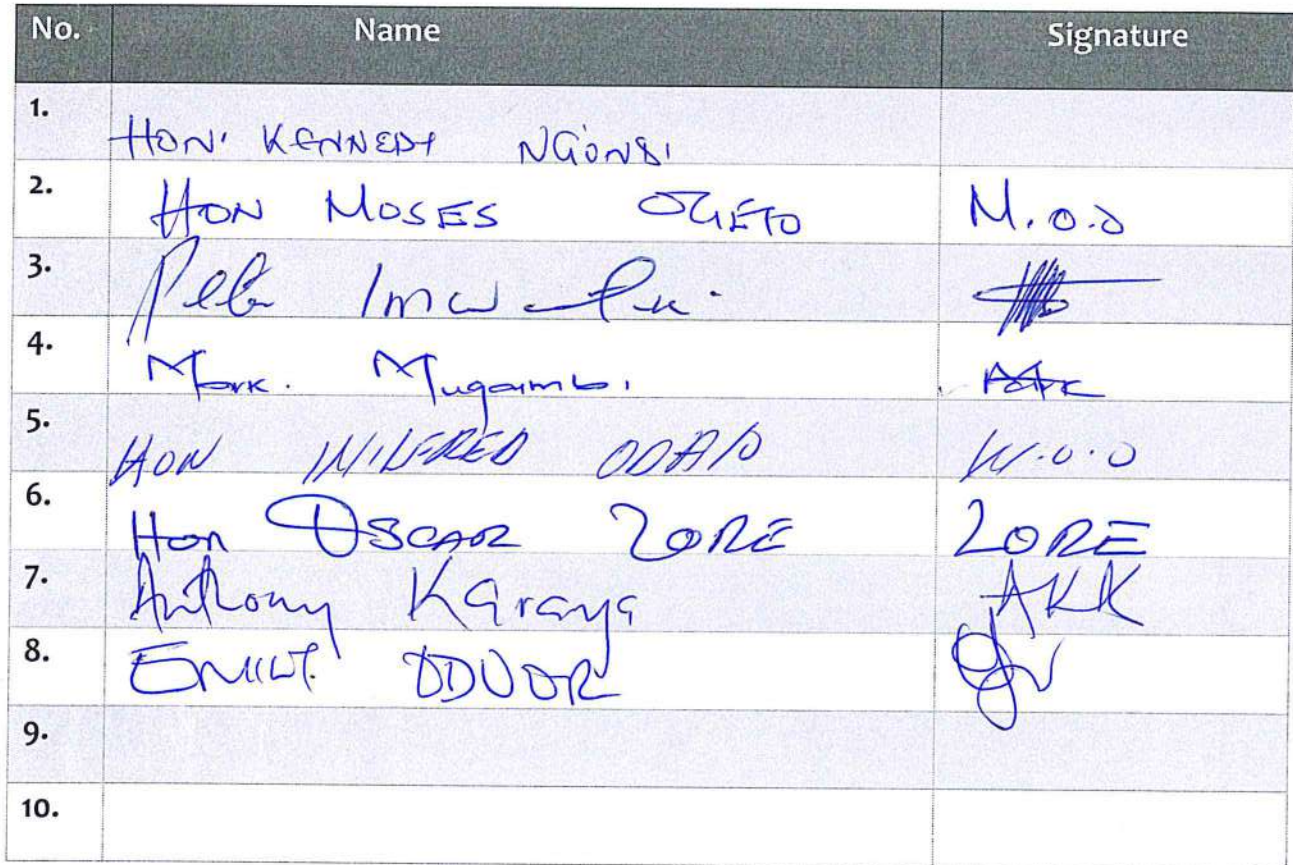 No. Name Signature
1. HON. KENNEDY NG'ONDI
2. HON MOSES OGETO M.O.O
3. Peter Imwatok
4. Mark Mugambi Mark
5. HON WILFRED ODALO W.O.O
6. Hon OSCAR LORE LORE
7. Anthony Karanja AKK
8. EMILY ODUOR
9.
10.